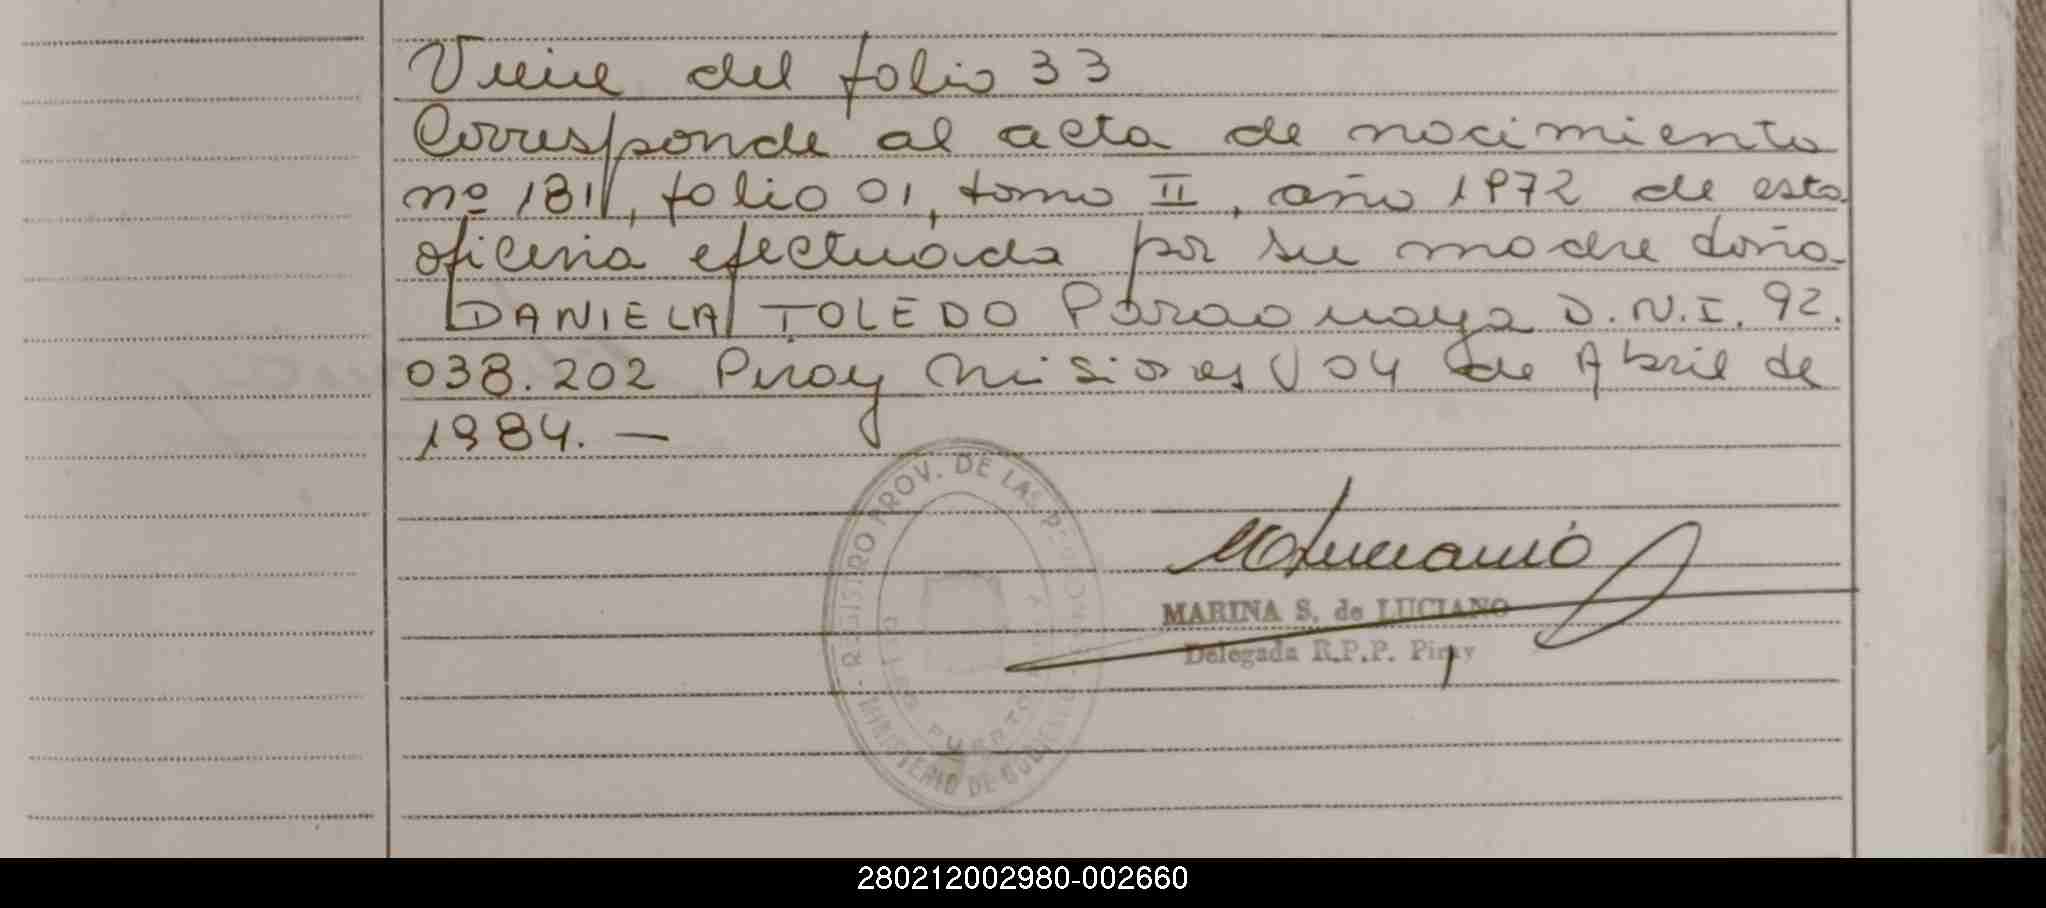 Viene del folio 33
Corresponde al acta de nacimiento
nº 181, folio 01, tomo II, año 1972 de esta
oficina efectuada por su madre doña
DANIELA TOLEDO Paraguaya D.N.I. 92.
038.202 Piray Misiones 04 de Abril de
1984. —
REGISTRO PROV. DE LAS PERSONAS
MINISTERIO DE GOBIERNO
PUERTO
MARINA S. de LUCIANO
Delegada R.P.P. Piray
280212002980-002660